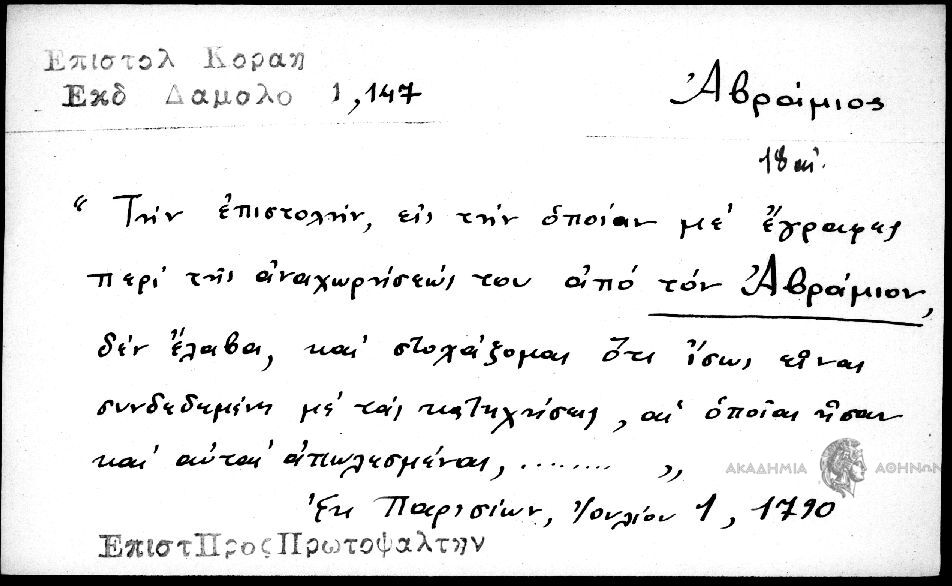 Επιστολ Κοραη
Εκδ Δαμολο 1,147
Ἀβράμιος
18 αἰ.
“ Τήν ἐπιστολήν, εἰς τήν ὁποίαν μέ ἔγραφες
περί τῆς ἀναχωρήσεώς του ἀπό τόν Ἀβράμιον,
δέν ἔλαβα, καί στοχάζομαι ὅτι ἴσως εἶναι
συνδεδεμένη μέ τάς κατηχήσεις, αἱ ὁποῖαι ἦσαν
καί αὐταί ἀπωλεσμέναι, ........ ,,
ΑΚΑΔΗΜΙΑ ΑΘΗΝΩΝ
Ἐκ Παρισίων, Ἰουλίου 1, 1790
ΕπιστΠροςΠρωτοψαλτην